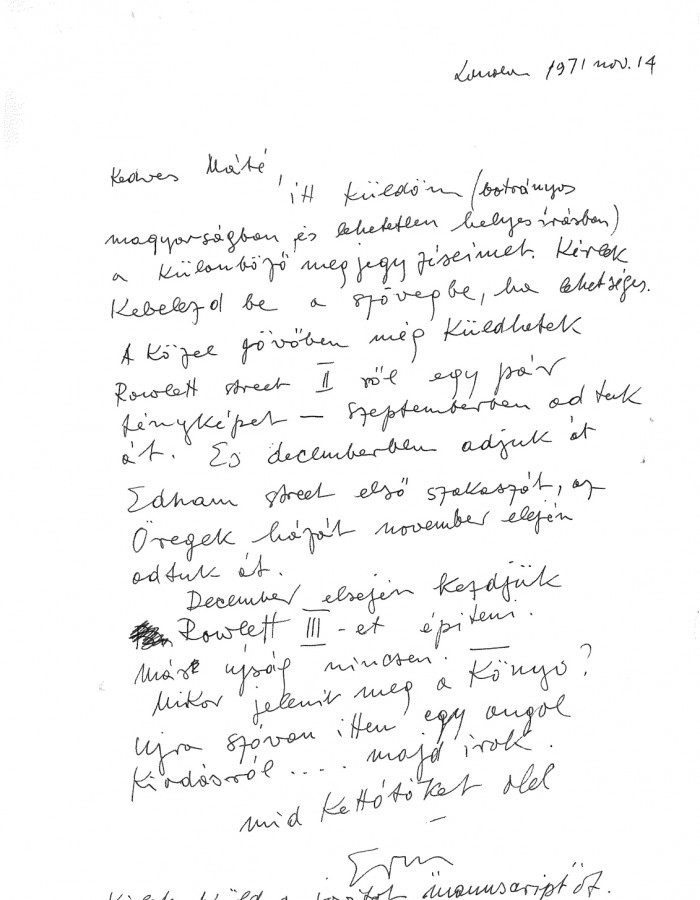 London 1971 nov. 14
Kedves Máté,
itt küldöm (botrányos
magyorságban és lehetetlen helyesírásban)
a különböző megjegyzéseimet. Kérlek
Kebelezd be a szövegbe, ha lehetséges.
A közel jövőben még küldhetek
Rowlett street II ről egy pár
fényképet — szeptemberben adtuk
át. És decemberben adjuk át
Edham street első szakaszát, az
Öregek házát november elején
adtuk át.
December elsején kezdjük
Rowlett III-et építeni.
Más újság nincsen.
Mikor jelenik meg a Könyv?
Ujra szóvan itten egy angol
Kiadásról .... majd irok.
mid Kettőtöket ölel
Ernő
manuscriptöt.